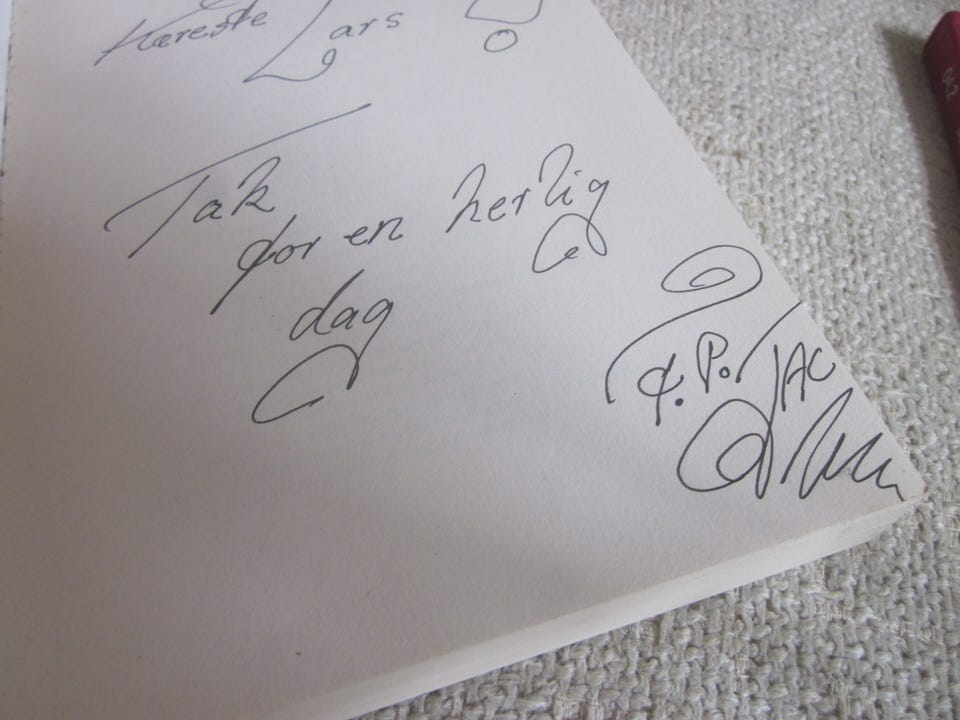 Kæreste Lars !
Tak
for en herlig
dag
F.P. Jac